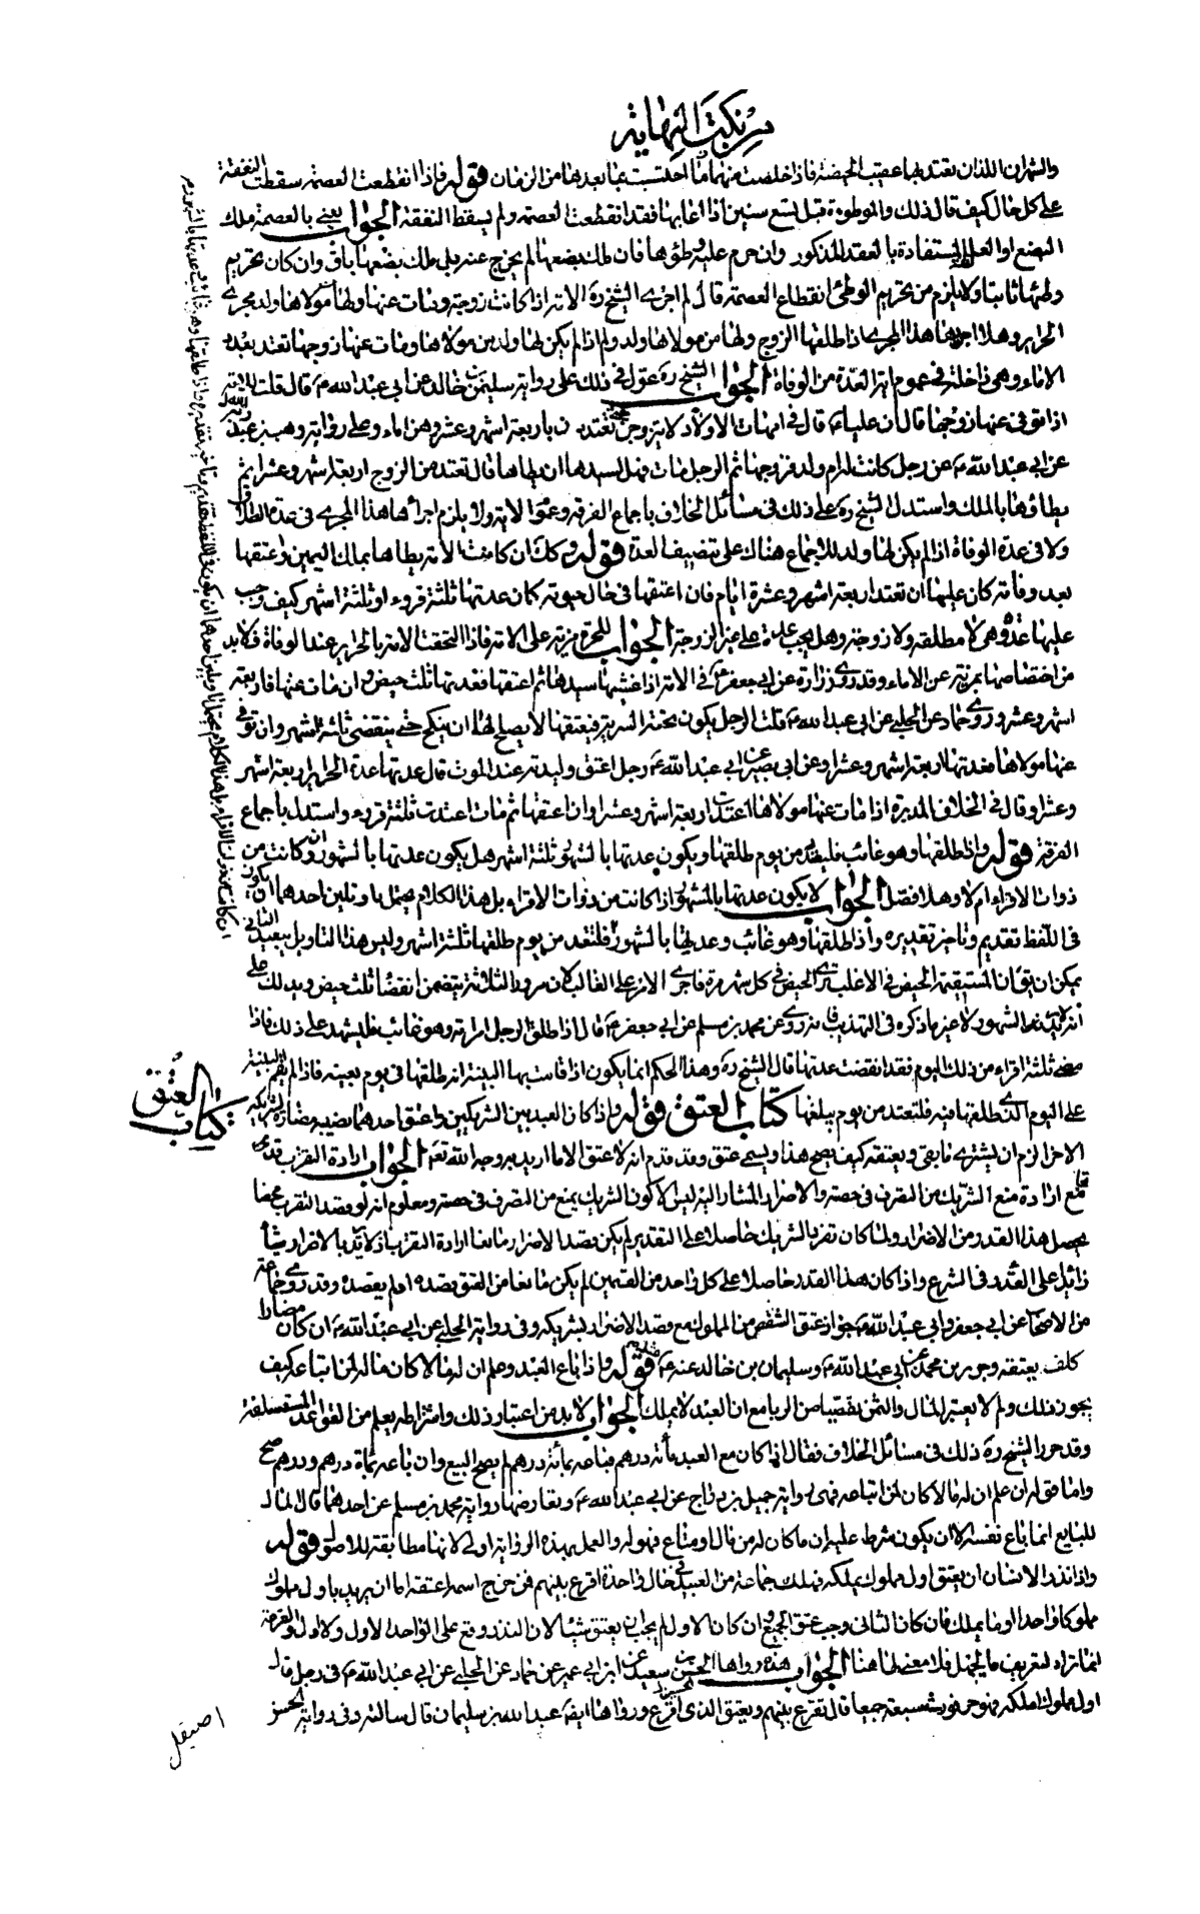 من نكت النهاية
والشهران اللذان تعتد بهما عقيب الحيضة فاذا خلصت منهما ما احتسبت بما بعدها من الزمان قوله فاذا انقطعت العصمة سقطت النفقة
على كل حال كيف قال ذلك والموطوءة قبل تسع سنين اذا اغابها فقد انقطعت العصمة ولم يسقط النفقة الجواب يعني بالعصمة ملك
البضع او المستفادة بالعقد المذكور وان حرم عليه وطؤها فان ملك بضعها لم يخرج عنه بلى ملك بضعها باق وان كان تحريم
وطئها ثابتا ولا يلزم من تحريم الوطئ انقطاع العصمة قال لم اجرى الشيخ ره الامة اذا كانت زوجة ومات عنها ولها من مولاها ولد مجرى
الحراير وهلا اجريها هذا المجرى اذا طلقها الزوج ولها من مولاها ولد ولم اذا لم يكن لها ولد من مولاها ومات عنها زوجها تعتد بعدة
الاماء وهى داخلة في عموم اية العدة من الوفاة الجواب الشيخ ره عول في ذلك على رواية سليمن بن خالد عن ابي عبد الله ع قال قلت الامة
اذا توفى عنها زوجها قال ان عليا ع قال في امهات الاولاد لا يتزوجن حتى تعتدن باربعة اشهر وعشر وهن اماء وعلى رواية وهب بن عبد ربه
عن ابي عبد الله ع عن رجل كانت له ام ولد فزوجها ثم الرجل مات فهل لسيدها ان يطاها قال تعتد من الزوج اربعة اشهر وعشرا ثم
يطاؤها بالملك واستدل الشيخ ره على ذلك في مسائل الخلاف باجماع الفرقة وعموم الاية ولا يلزم اجراؤها هذا المجرى في عدة الطلاق
ولا في عدة الوفاة اذا لم يكن لها ولد للاجماع هناك على تنصيف العدة قوله وكذلك ان كانت الامة يطاها بملك اليمين واعتقها
بعد وفاته كان عليها ان تعتد اربعة اشهر وعشرة ايام فان اعتقها في حال حيوته كان عدتها ثلثة قروء او ثلثة اشهر كيف وجب
عليها عدة وهى لا مطلقة ولا زوجة وهل يجب عدة على غير الزوجة الجواب للحرة مزية على الامة فاذا التحقت الامة بالحراير عند الوفاة فلا بد
من اختصاصها بمزية عن الاماء وقد روى زرارة عن ابي جعفر ع في الامة اذا غشيها سيدها ثم اعتقها فعدتها ثلث حيض وان مات عنها فاربعة
اشهر وعشر وروى حماد عن الحلبي عن ابي عبد الله ع قلت الرجل يكون تحته السرية فيعتقها قال لا يصلح لها ان ينكح حتى ينقضي ثلثة اشهر وان توفى
عنها مولاها فعدتها اربعة اشهر وعشرا وعن ابي بصير عن ابي عبد الله ع رجل اعتق وليدته عند الموت قال عدتها عدة الحراير اربعة اشهر
وعشرا وقال في الخلاف المدبرة اذا مات عنها مولاها اعتدت اربعة اشهر وعشرا وان اعتقها ثم مات اعتدت ثلثة قروء واستدل باجماع
الفرقة قوله واذا طلقها وهو غائب فليعتد من يوم طلقها ويكون عدتها بالشهور ثلثة اشهر هل يكون عدتها بالشهور ان كانت من
ذوات الاقراء ام لا وهلا فصل الجواب لا يكون عدتها بالشهور اذا كانت من ذوات الاقراء بل هذا الكلام يحتمل تاويلين احدهما ان يكون
في اللفظ تقديم وتاخير تقديره واذا طلقها وهو غائب وعدتها بالشهور فلتعتد من يوم طلقها ثلثة اشهر وليس هذا التاويل ببعيد الثاني
يمكن ان يق ان المستقيمة الحيض في الاغلب ترى الحيض في كل شهر مرة فاجرى الامر على الغالب لان مرور الثلاثة يتضمن انقضاء ثلث حيض ويدلك على
انه لا يريد الشهور لا غير ما ذكره في التهذيب فانه روى عن محمد بن مسلم عن ابي جعفر ع قال اذا طلق الرجل امراته وهو غائب فليشهد على ذلك فاذا
مضى ثلثة اقراء من ذلك اليوم فقد انقضت عدتها قال الشيخ ره وهذا الحكم انما يكون اذا قامت لها البينة انه طلقها في يوم بعينه فاذا لم تقم البينة
على اليوم الذى طلقها فيه فلتعتد من يوم يبلغها كتاب العتق قوله واذا كان العبد بين الشريكين واعتق احدهما نصيبه مضارة لشريكه
الاخر الزم ان يشترى ما بقى ويعتقه كيف يصح هذا ويسمى عتق وقد قدم انه لا عتق الا ما اريد به وجه الله تع الجواب ارادة التقرب قد
مع ارادة منع الشريك من التصرف في حصته والاضرار المشار اليه ليس الا كون الشريك يمنع من التصرف في حصته ومعلوم انه لو قصد التقرب محضا
يحصل هذا القدر من الاضرار ولما كان تضرر الشريك حاصلا على التقديرين لم يكن قصد الاضرار مانعا ارادة التقرب اذ لا يريد بالاضرار شيأ
زائدا على القدر في الشرع واذا كان هذا القدر حاصلا على كل واحد من القسمين لم يكن مانعا من العتق قصده او لم يقصده وقد روى جماعة
من الاصحاب عن ابي جعفر وابي عبد الله ع جواز عتق الشقص من المملوك مع قصد الاضرار لشريكه وفي رواية الحلبي عن ابي عبد الله ع ان كان مضارا
كلف يعتقه وحريز عن محمد عن ابي عبد الله ع وسليمان بن خالد عنه ع قوله واذا باع العبد وعلم ان له مالا كان ماله لمن ابتاعه كيف
يجوز ذلك ولم لا يعتبر المال والثمن تقصيا من الربا مع ان العبد لا يملك الجواب لا بد من اعتبار ذلك واشتراطه يعلم من القواعد
وقد حرر الشيخ ره ذلك في مسائل الخلاف فقال اذا كان مع العبد مأة درهم فباعه بمأة درهم لم يصح البيع وان باعه بمأة درهم ودرهم صح
واما قوله ان علم ان له مالا كان لمن ابتاعه فهى رواية جميل بن دراج عن ابي عبد الله ع وتعارضها رواية محمد بن مسلم عن احدهما قال المال
للبايع انما باع نفسه الا ان يكون شرط عليه ان ما كان له من مال او متاع فهو له والعمل بهذه الرواية اولى لانها مطابقة للاصول قوله
واذا نذر الانسان ان يعتق اول مملوك يملكه فملك جماعة من العبيد في حال واحدة اقرع بينهم فمن خرج اسمه اعتقه اما ان يريد باول مملوك
مملوكا واحدا او ما يملك فان كان الثاني وجب عتق الجميع وان كان الاول لم يجب ان يعتق شيئا لان النذر وقع على الواحد الاول ولا اول والقرعة
انما تراد لتعريف ما يجهل فلا معنى لها هنا الجواب هذه رواها الحسين بن سعيد عن ابن ابي عمير عن حماد عن الحلبي عن ابي عبد الله ع في رجل قال
اول مملوك املكه فهو حر فورث سبعة جميعا قال تقرع بينهم ويعتق الذى اقرع ورواها ايضا عبد الله بن سليمان قال سالته وفي رواية الحسن
كتاب العتق